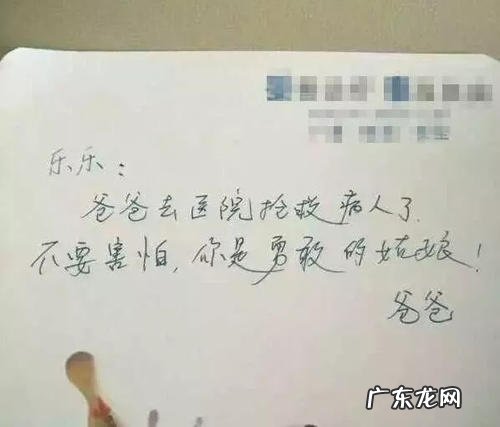 乐乐：
爸爸去医院抢救病人了.
不要害怕,你是勇敢的姑娘!
爸爸
广东龙网